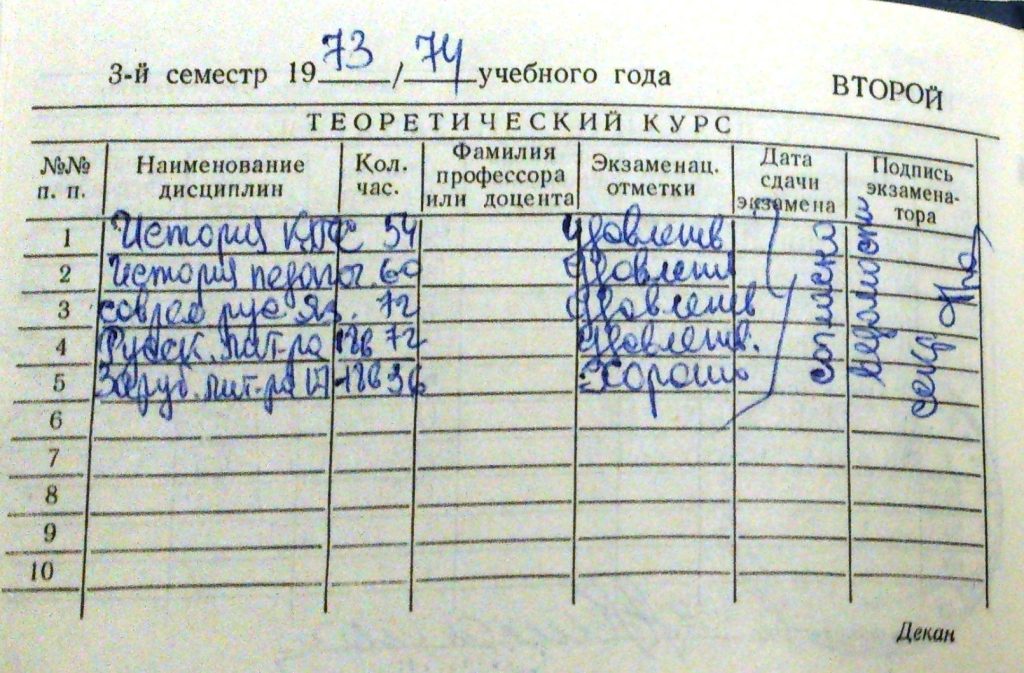 3-й семестр 1973/74 учебного года
ВТОРОЙ
ТЕОРЕТИЧЕСКИЙ КУРС
№№ п. п. Наименование дисциплин Кол. час. Фамилия профессора или доцента Экзаменац. отметки Дата сдачи экзамена Подпись экзамена-тора
1 История КПСС 54 Удовлетв
2 История педагог. 60 Удовлетв
3 соврем рус яз. 72 Удовлетв
4 Русск. лит-ра 72 Удовлетв.
5 Заруб. лит-ра 36 Хорошо
6
7
8
9
10
согласно
ведомости
секр
Декан